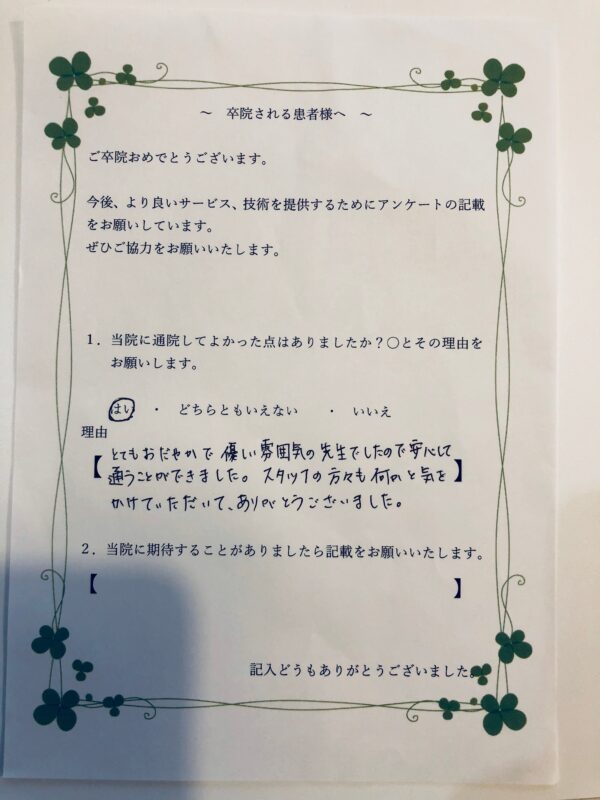 ～　卒院される患者様へ　～
ご卒院おめでとうございます。
今後、より良いサービス、技術を提供するためにアンケートの記載
をお願いしています。
ぜひご協力をお願いいたします。
１．当院に通院してよかった点はありましたか？〇とその理由を
お願いします。
はい　・　どちらともいえない　・　いいえ
理由
【とてもおだやかで優しい雰囲気の先生でしたので安心して
通うことができました。スタッフの方々も何かと気を】
かけていただいて、ありがとうございました。
２．当院に期待することがありましたら記載をお願いいたします。
【　】
記入どうもありがとうございました。